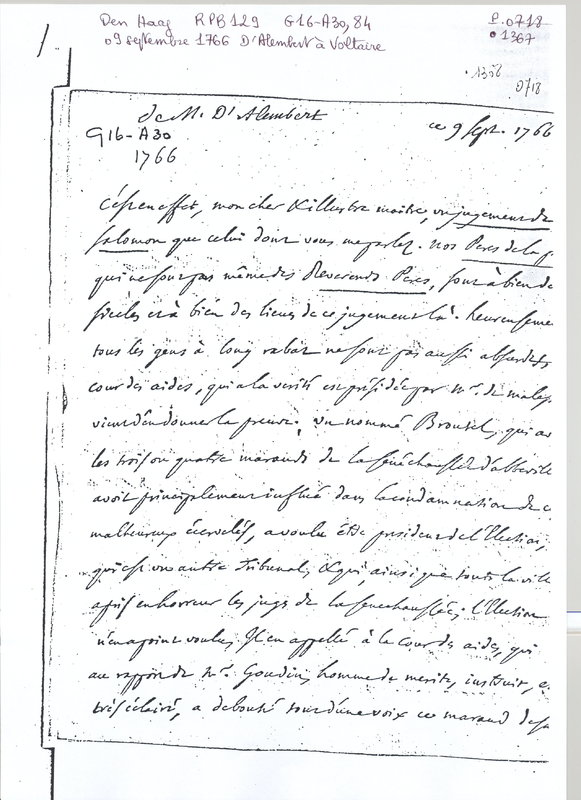 Den Haag RPB129 G16-A30, 84
09 septembre 1766 D'Alembert à Voltaire
P.0718
1367
1308
0718
de M. D'Alembert
G16-A30
1766
ce 9 sept. 1766
C'est en effet, mon cher & illustre maitre, un jugement de
Salomon que celui dont vous me parlez. nos Peres de la
qui ne sont pas même des Reverends Peres, sont à bien de
siecles et à bien des lieues de ce jugement là. heureuseme
tous les gens à long rabat ne sont pas aussi absurdes,
cour des aides, qui a la verité est présidée par Mr. de males
vient d'en donner la preuve. un nommé Broutel, qui av
les trois ou quatre marauds de la sénéchaussée d'abbeville
avoit principalement influé dans la condamnation de c
malheureux écervelés, a voulu être president de l'Election,
qui est un autre Tribunal, & qui, ainsi que toute la ville
a pris en horreur les juges de la senechaussée; l'Election
n'en a point voulu, Il en a appellé à la cour des aides, qui
au rapport de Mr. Goudin, homme de merite, instruit, e
très éclairé, a debouté tout d'une voix ce maraud de sa